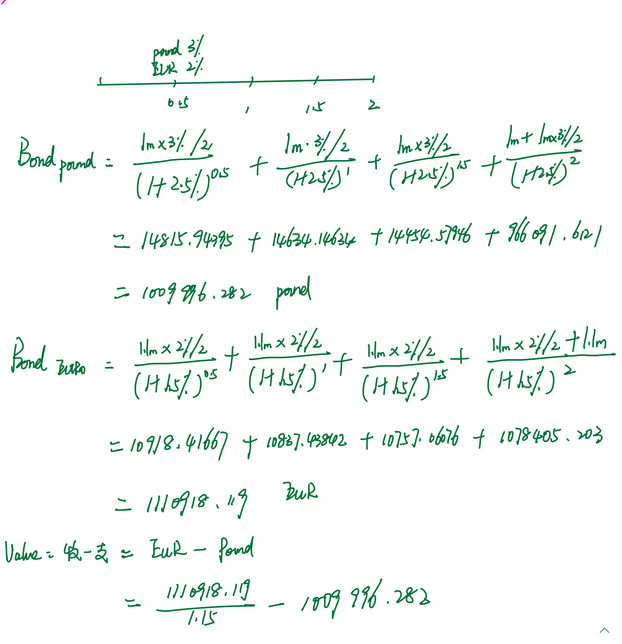 pound 3%
EUR 2%
0.5 1 1.5 2
Bond pound = 1m×3%/2 / (1+2.5%)^0.5 + 1m·3%/2 / (1+2.5%)^1 + 1m×3%/2 / (1+2.5%)^1.5 + 1m+1m×3%/2 / (1+2.5%)^2
= 14815.94795 + 14634.14634 + 14454.57946 + 966091.6121
= 1009996.282 pound
Bond EURO = 1.1m×2%/2 / (1+1.5%)^0.5 + 1.1m×2%/2 / (1+1.5%)^1 + 1.1m×2%/2 / (1+1.5%)^1.5 + 1.1m×2%/2+1.1m / (1+1.5%)^2
= 10918.41667 + 10837.43842 + 10757.06076 + 1078405.203
= 1110918.119 EUR
Value = 收-支 = EUR - Pound
= 1110918.119 / 1.15 - 1009996.282